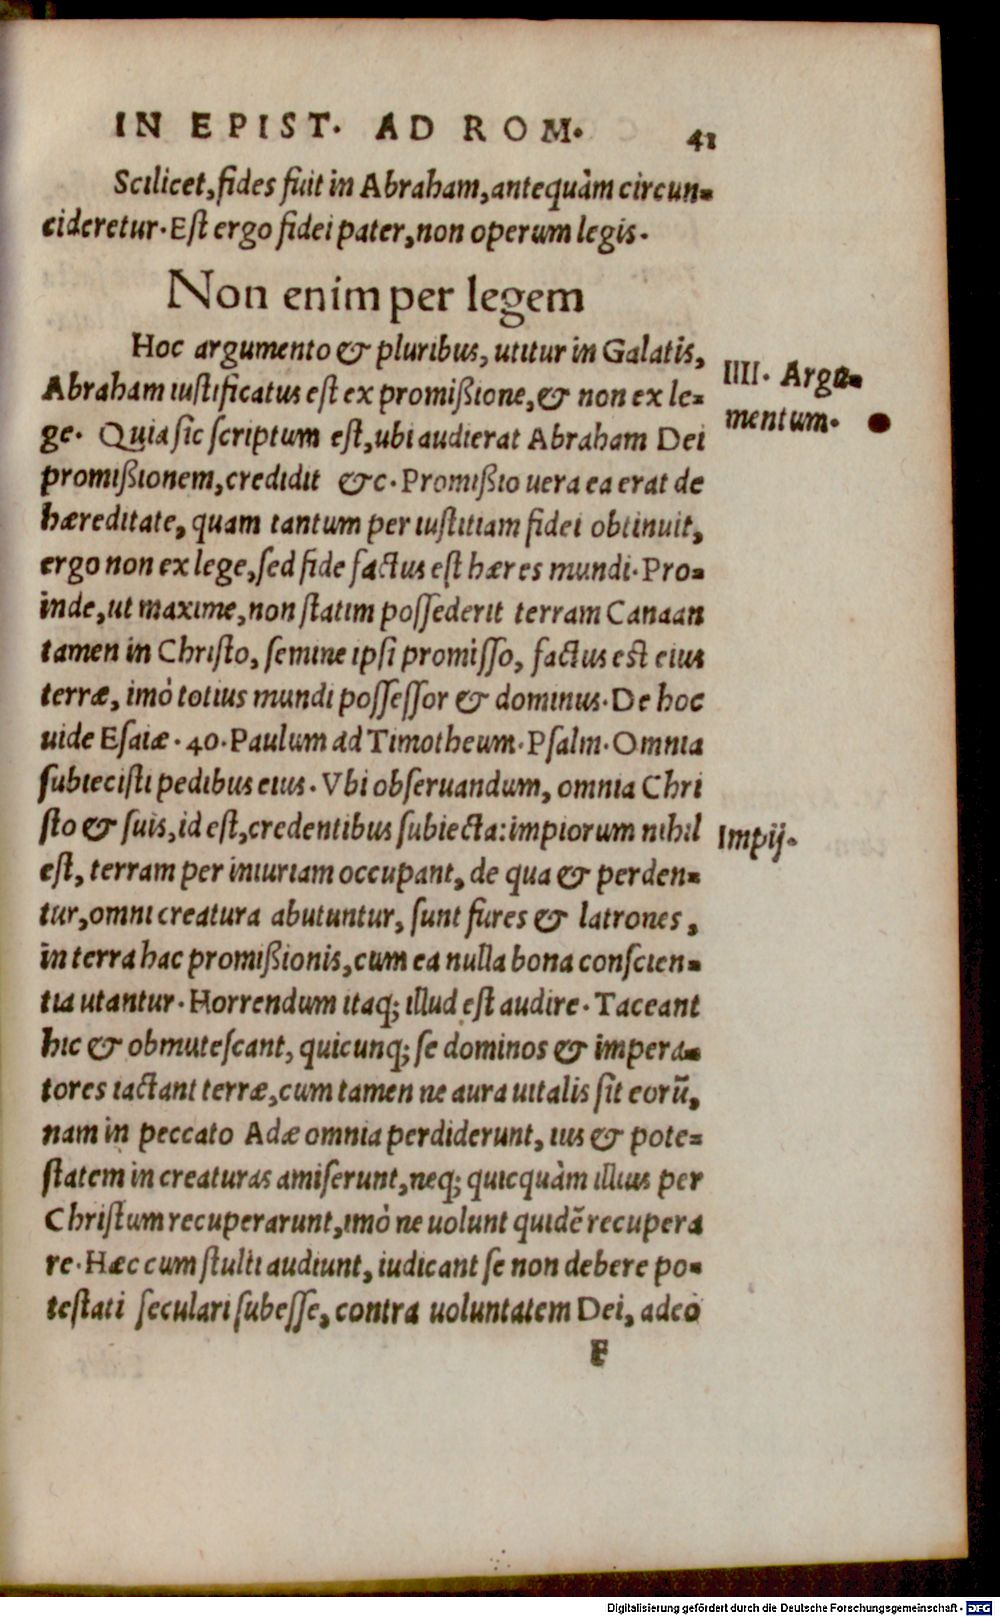 IN EPIST. AD ROM. 41
Scilicet, fides fuit in Abraham, antequàm circun-
cideretur. Est ergo fidei pater, non operum legis.
Non enim per legem
Hoc argumento & pluribus, utitur in Galatis,
IIII. Argu-
mentum.
Abraham iustificatus est ex promißione, & non ex le-
ge. Quia sic scriptum est, ubi audierat Abraham Dei
promißionem, credidit &c. Promißio uera ea erat de
hæreditate, quam tantum per iustitiam fidei obtinuit,
ergo non ex lege, sed fide factus est hæres mundi. Pro-
inde, ut maxime, non statim possederit terram Canaan
tamen in Christo, semine ipsi promisso, factus est eius
terræ, imò totius mundi possessor & dominus. De hoc
uide Esaiæ. 40. Paulum ad Timotheum. Psalm. Omnia
subiecisti pedibus eius. Vbi obseruandum, omnia Chri
sto & suis, id est, credentibus subiecta: impiorum nihil
Impij.
est, terram per iniuriam occupant, de qua & perden-
tur, omni creatura abutuntur, sunt fures & latrones,
in terra hac promißionis, cum ea nulla bona conscien-
tia utantur. Horrendum itaq; illud est audire. Taceant
hic & obmutescant, quicunq; se dominos & impera-
tores iactant terræ, cum tamen ne aura uitalis sit eorū,
nam in peccato Adæ omnia perdiderunt, ius & pote-
statem in creaturas amiserunt, neq; quicquàm illius per
Christum recuperarunt, imò ne uolunt quidē recupera
re. Hæc cum stulti audiunt, iudicant se non debere po-
testati seculari subesse, contra uoluntatem Dei, adeo
F
Digitalisierung gefördert durch die Deutsche Forschungsgemeinschaft - DFG